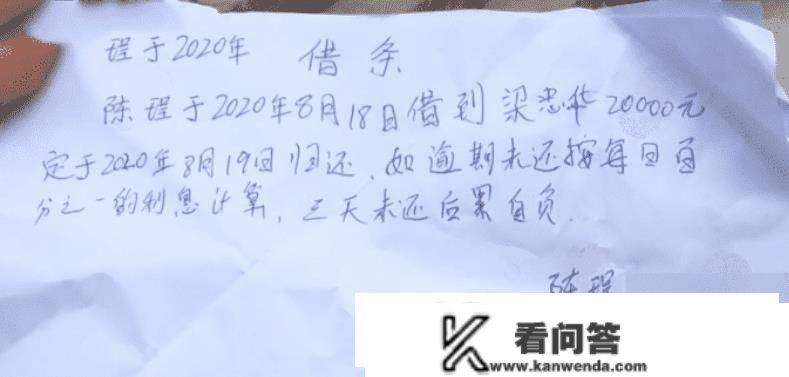 珵于2020年 借条
陈珵于2020年8月18日借到梁忠华20000元
定于2020年8月19日归还，如逾期未还按每日百
分之一的利息计算，三天未还后果自负.
陈珵
看问答
www.kanwenda.com